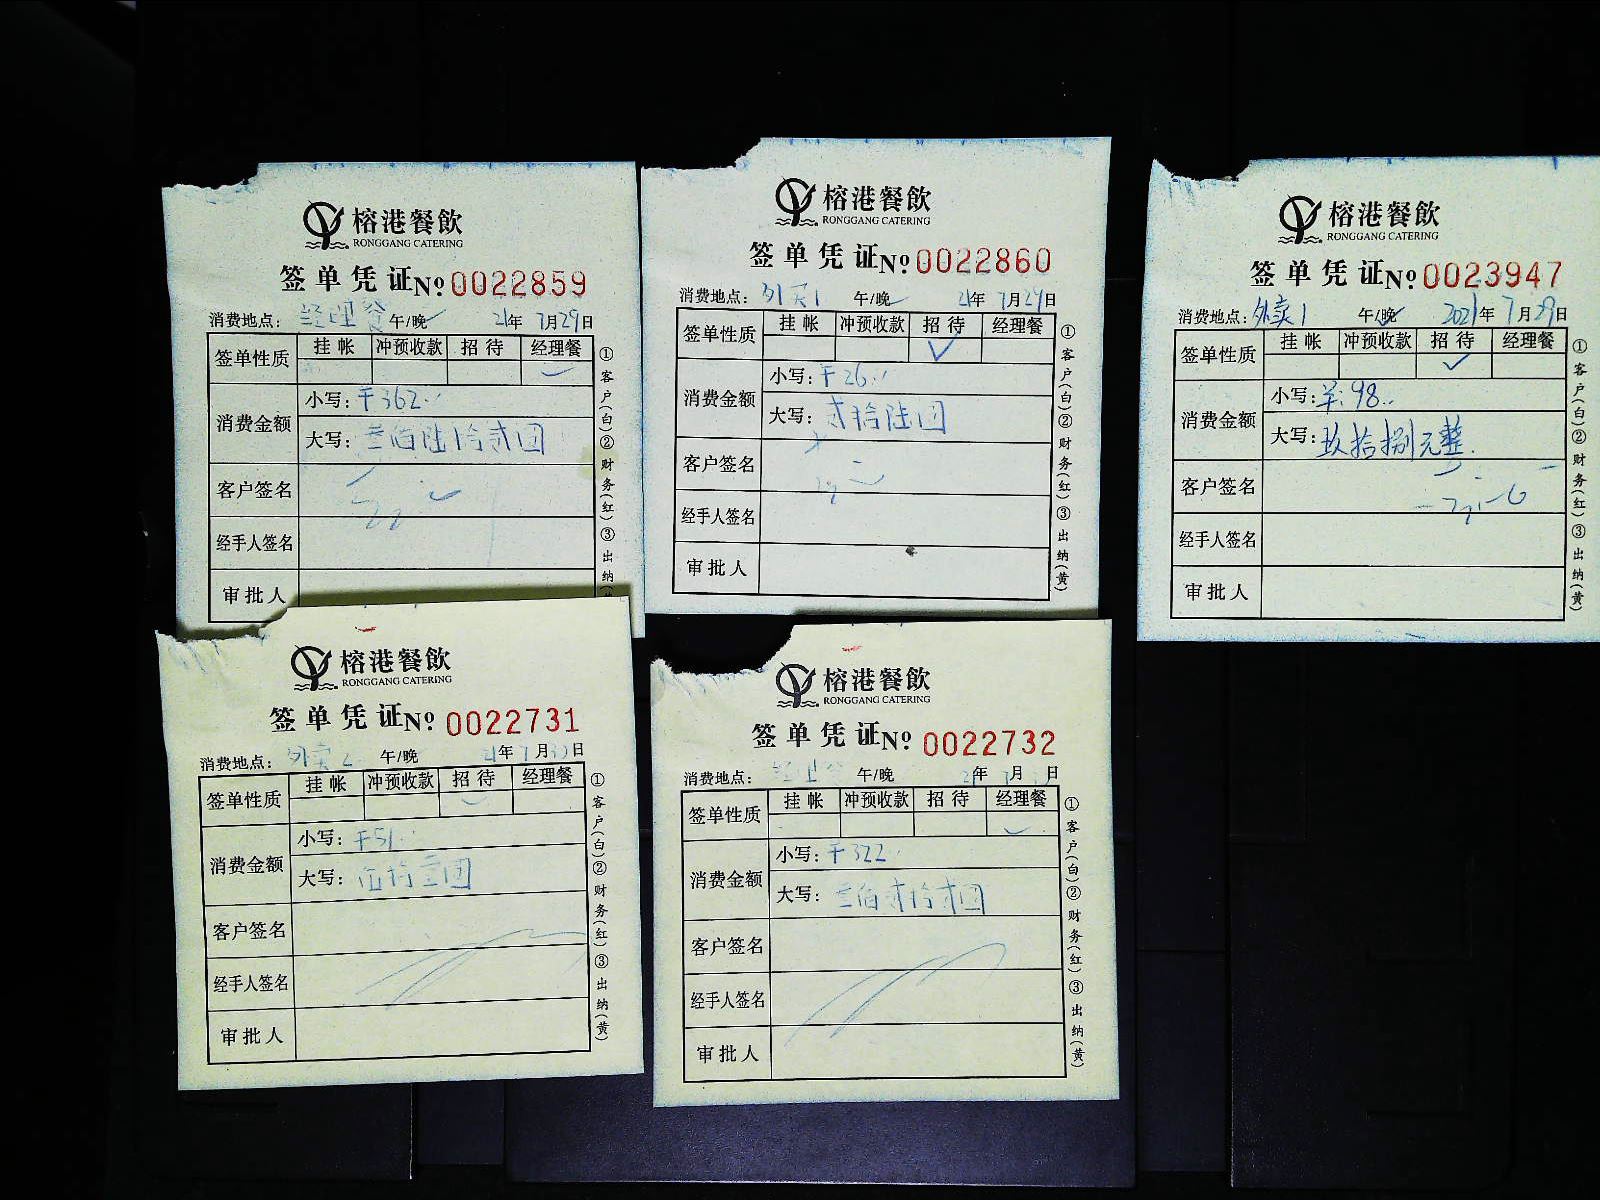 榕港餐飲
RONGGANG CATERING
签单凭证 No 0022859
消费地点: 经理餐 午/晚✓ 21年 7月29日
签单性质 挂帐 冲预收款 招待 经理餐
✓
消费金额 小写: 〒362..
大写: 叁佰陆拾贰圆
客户签名
经手人签名
审批人
①客户(白)②财务(红)③出纳
榕港餐飲
RONGGANG CATERING
签单凭证 No 0022860
消费地点: 外卖1 午/晚✓ 21年 7月29日
签单性质 挂帐 冲预收款 招待 经理餐
✓
消费金额 小写: 〒26..
大写: 贰拾陆圆
客户签名
经手人签名
审批人
①客户(白)②财务(红)③出纳(黄)
榕港餐飲
RONGGANG CATERING
签单凭证 No 0023947
消费地点: 外卖1 午/晚✓ 2021年 7月29日
签单性质 挂帐 冲预收款 招待 经理餐
✓
消费金额 小写: 羊:98..
大写: 玖拾捌元整.
客户签名
经手人签名
审批人
①客户(白)②财务(红)③出纳(黄)
榕港餐飲
RONGGANG CATERING
签单凭证 No 0022731
消费地点: 外卖2 午/晚 21年 7月 日
签单性质 挂帐 冲预收款 招待 经理餐
✓
消费金额 小写: 〒51..
大写: 伍拾壹圆
客户签名
经手人签名
审批人
①客户(白)②财务(红)③出纳(黄)
榕港餐飲
RONGGANG CATERING
签单凭证 No 0022732
消费地点: 经理 午/晚 年 月 日
签单性质 挂帐 冲预收款 招待 经理餐
✓
消费金额 小写: 〒322.
大写: 叁佰贰拾贰圆
客户签名
经手人签名
审批人
①客户(白)②财务(红)③出纳(黄)